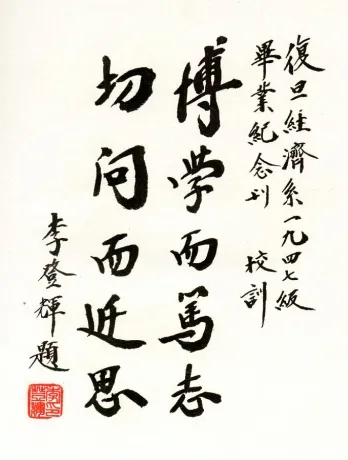 復旦經濟系一九四七級
畢業紀念刊 校訓
博学而篤志
切问而近思
李登輝題